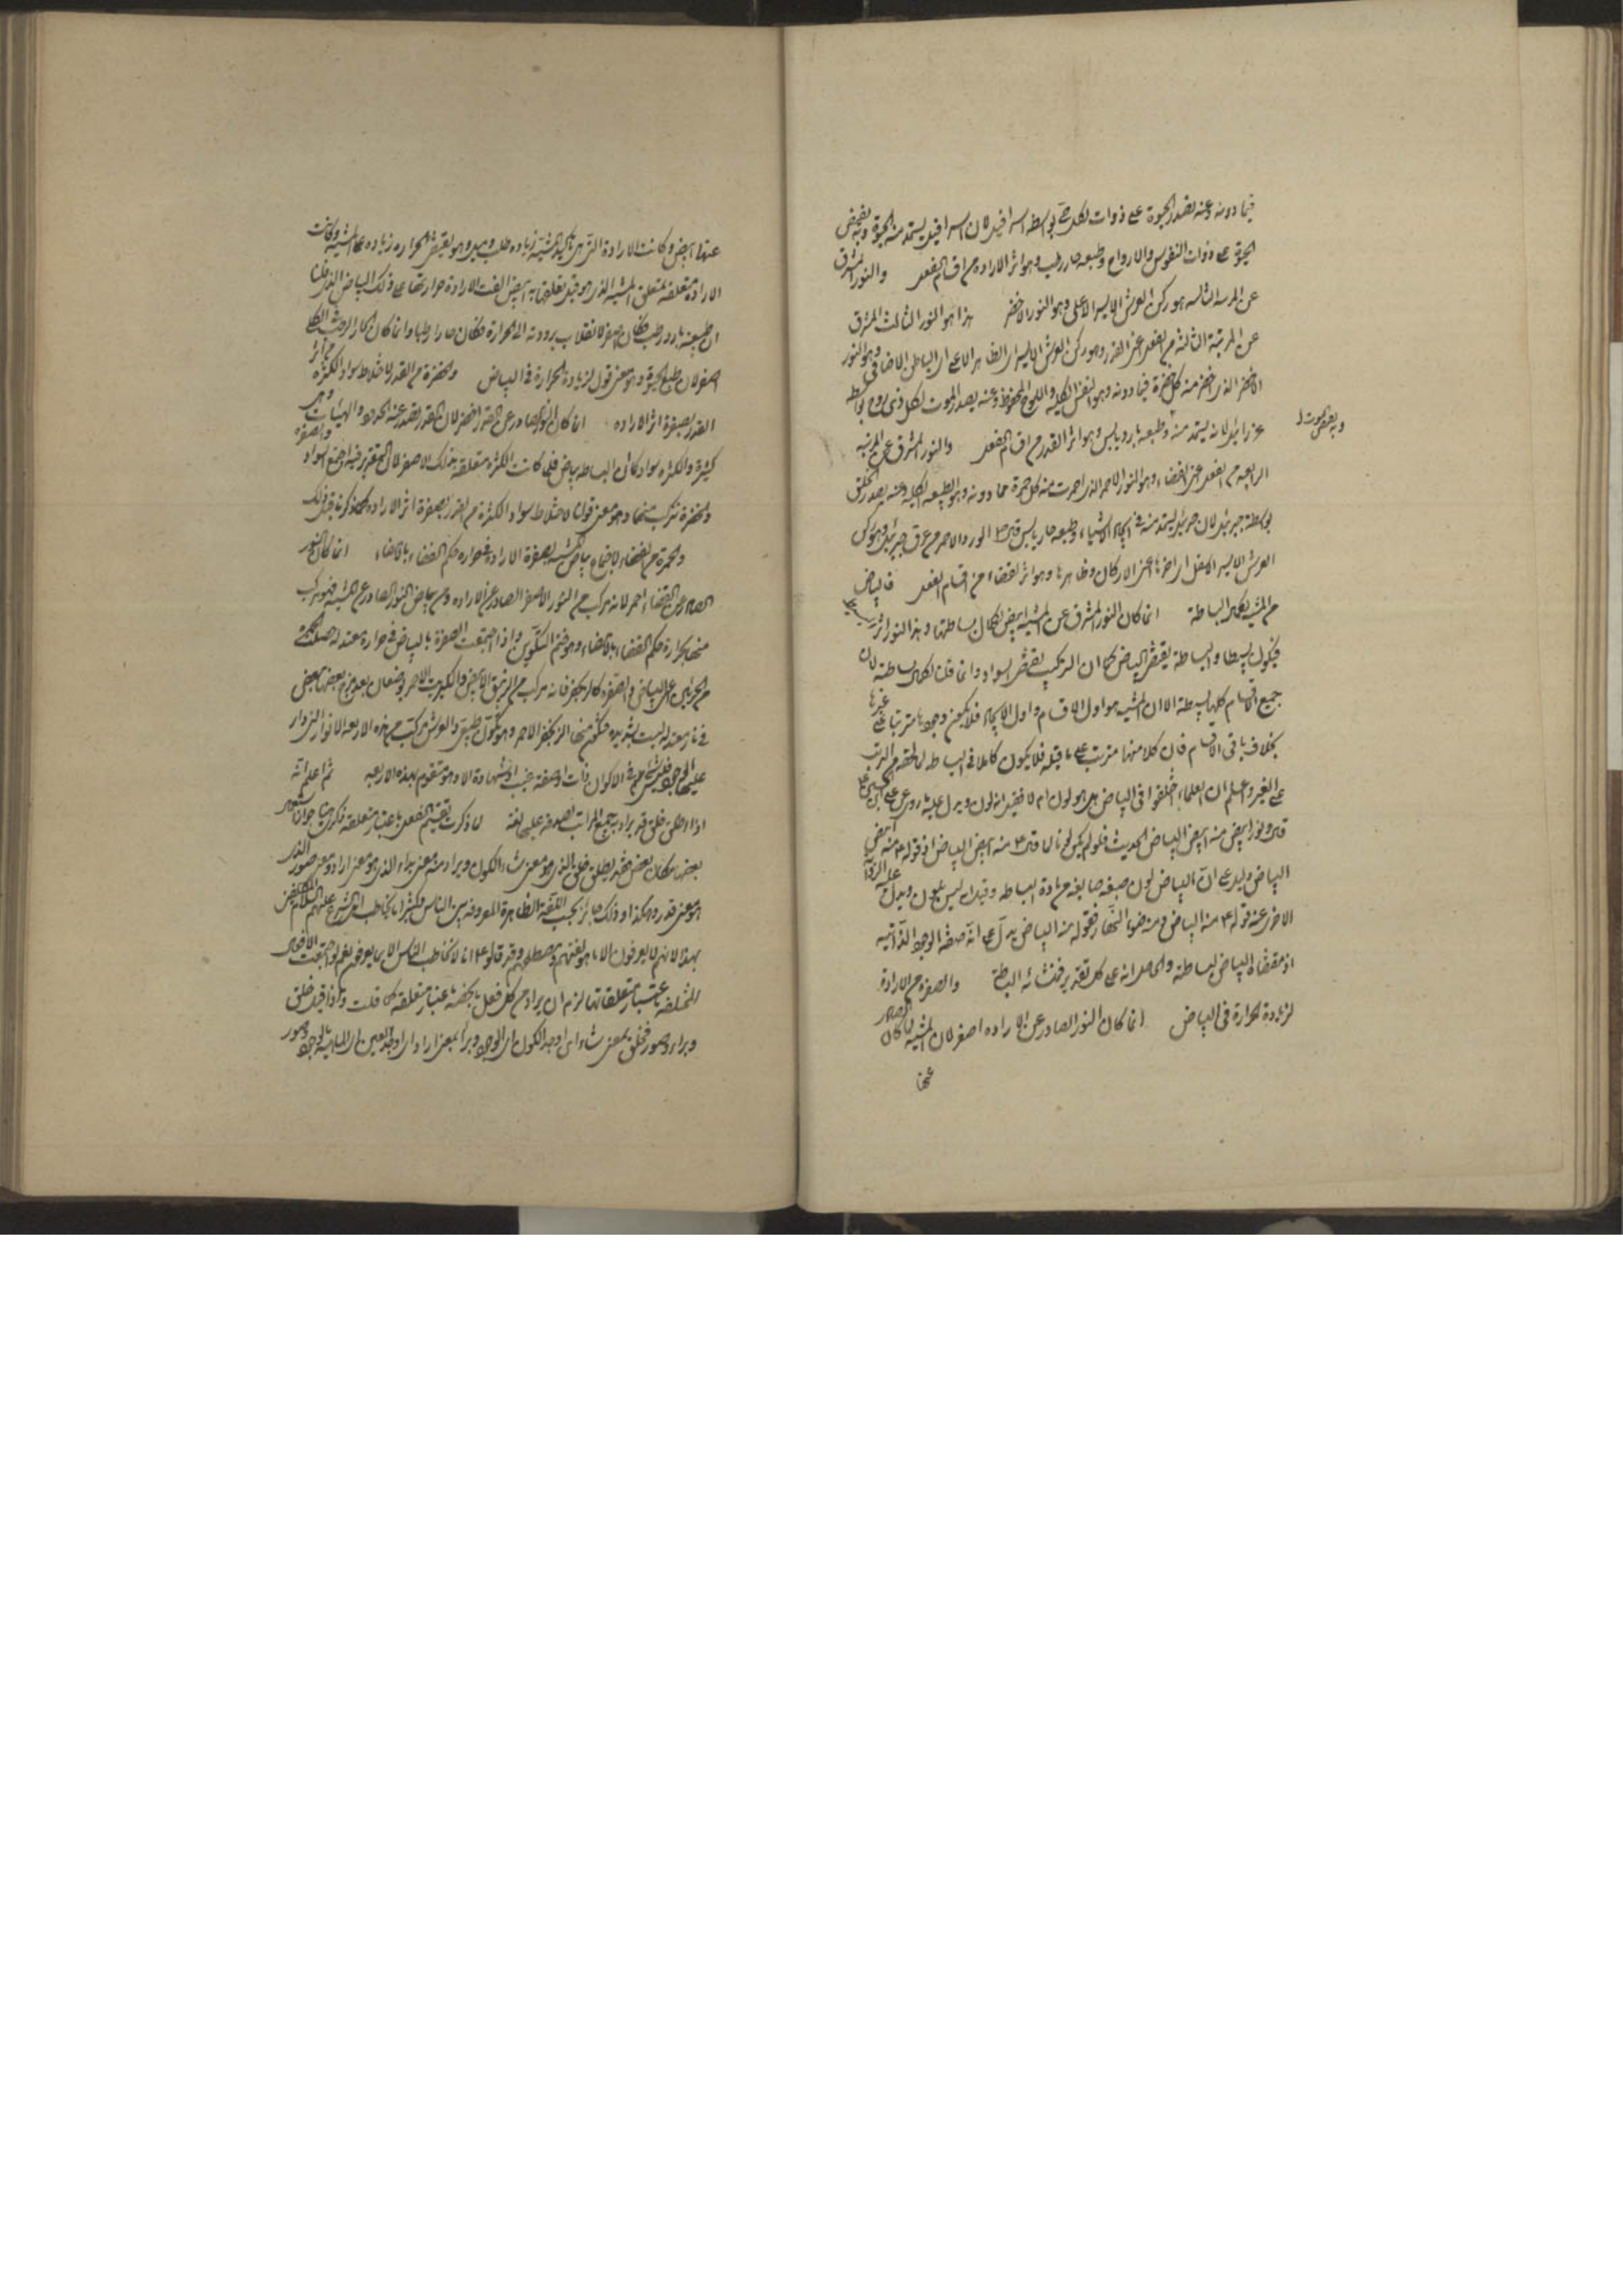 فيما دونه وعنه تصدر الحيوة على ذوات لكل شيء بواسطة اسرافيل لان اسرافيل يستمد منه الحيوة وبه يفيض
الحيوة على ذوات النفوس والارواح وطبعه حار رطب وهو اثر الارادة من اقسام الفعل والنور المشرق
عن المرتبة الثالثة هو ركن العرش الايسر الاعلى وهو النور الاخضر هذا هو النور الثالث المشرق
عن المرتبة الثالثة من الفعل اعني القدر وهو ركن العرش الايسر اي الظاهر الاعلى اي الباطن الاضافي وهو النور
الاخضر الذي اخضرت منه كل خضرة فيما دونه وهو النفس الكلية واللوح المحفوظ وعنه يصدر الموت لكل ذي روح بواسطة
وبه يقبض الموت
عزرائيل لانه يستمد منه وطبعه بارد يابس وهو اثر القدر من اقسام الفعل والنور المشرق عن المرتبة
الرابعة من الفعل اعني القضاء وهو النور الاحمر الذي احمرت منه كل حمرة مما دونه وهو الطبيعة الكلية وعنه يصدر الخلق
بواسطة جبرئيل لان جبرئيل يستمد منه في ايجاد الاشياء وطبعه حار يابس قال الورد الاحمر من عرق جبرئيل وهو ركن
العرش الايسر الاسفل اي اخر الاركان وظاهرها وهو اثر القضاء من اقسام الفعل فالبياض
من المشية لكمال البساطة انما كان النور المشرق عن المشية ابيض لكمال بساطتها وهذا النور اثر
فيكون بسيطا والبساطة يقتضي البياض كما ان التركيب يقتضي السواد وانما قلنا لكمال بساطته لان
جميع الاقسام كلها بسيطة الا ان المشية هو اول الاقسام واول الايجاد فلا يكون وجودها مترتبا على غيرها
بخلاف باقي الاقسام فان كلا منها مترتب على ما قبله فلا يكون كاملا في البساطة لما لحقه من الترتب
على الغير واعلم ان العلماء اختلفوا في البياض هل هو لون ام لا فقيل انه لون ويدل عليه ما روي عن علي بن الحسين ع
قال ونور ابيض منه ابيض البياض الحديث فلو لم يكن لونا لما قال ع منه ابيض البياض اذ قوله ع منه ابيض
البياض دليل على ان البياض لون صبغه صابغه من مادة البساطة وقيل انه ليس بلون ويدل عليه الرواية
الاخرى عنه قوله ع منه البياض ومنه ضوء النهار فقوله منه البياض يدل على انه صفة الوجود الذاتية
اذ مقتضاه البياض لبساطته والحاصل انه على كل تقدير فمنشائه البساطة والصفرة من الارادة
لزيادة الحرارة في البياض انما كان النور الصادر عن الارادة اصفر لان المشية لما كان الصادر
عنها
عنها ابيض وكانت الارادة التي هي تأكيد المشية زيادة طلب وميل وهو يقتضي الحرارة زيادة على المشية وكانت
الارادة متعلقة بمتعلق المشية الذي هو قبل تعلقها به ابيض القت الارادة حرارتها على ذلك البياض الذي قلنا
ان طبيعته بارد رطب فكان اصفر لانقلاب برودته الى الحرارة فكان حارا رطبا وانما كان الحار الرطب
اصفر لان طبع الحيوة وهو معنى قول لزيادة الحرارة في البياض والخضرة من القدر لاختلاط سواد الكثرة من اثر
القدر بصفرة اثر الارادة انما كان النور الصادر عن القدر اخضر لان القدر تصدر عنه الحدود والهيئات وهي
كثيرة والكثرة سواد كما ان البساطة بياض فلما كانت الكثرة متعلقة بذلك الاصفر لان التقدير فيه اجتمع السواد والصفرة
والخضرة تتركب منهما وهو معنى قولنا لاختلاط سواد الكثرة من القدر بصفرة اثر الارادة كما ذكرنا قبل ذلك
والحمرة من القضاء لاجتماع بياض المشية بصفرة الارادة في حرارة حكم القضاء بالامضاء انما كان النور
الصادر عن القضاء احمر لانه مركب من النور الاصفر الصادر عن الارادة ومن بياض النور الصادر عن المشية فهو مركب
منهما بحرارة حكم القضاء بالامضاء وهو ختم التكوين واذا اجتمعت الصفرة بالبياض في حرارة معتدلة حصلت الحمرة
من الجزئين اعني البياض والصفرة كالزنجفر فانه مركب من الزيبق الابيض والكبريت الاصفر يوضعان بعد مزج بعضهما ببعض
في نار معتدلة ليست بشديدة فتكون منهما الزنجفر الاحمر وهو تكون طبيعي والعرش مركب من هذه الاربعة الانوار التي دار
عليها الوجود فليس شيء في الاكوان ذات او صفة غيب او شهادة الا وهو متقوم بهذه الاربعة ثم اعلم انه
اذا اطلق خلق قد يراد به جميع المراتب لصدقه عليها لغة لما ذكرت تقسيم الفعل باعتبار متعلقه ذكرت هنا جواز استعمال
بعضها مكان بعض فقد يطلق خلق الذي هو معنى شاء الكون ويراد منه معنى براء الذي هو معنى اراد ومعنى صور الذي
هو معنى قدر وهكذا وذلك جائز بحسب اللغة الظاهرة المعروفة بين الناس وكثيرا ما يخاطب اهل الشرع عليهم السلام المكلفين
بهذا لانهم لا يعرفون الا ما هو لغتهم ومصطلحهم وقد قالوا ع انا لا نخاطب الناس الا بما يعرفون نعم لو اجتمعت الافعال
المختلفة باعتبار متعلقاتها لزم ان يراد من كل فعل ما يخصه باعتبار متعلقه كما قلت واذا قيل خلق
وبراء وصور فخلق بمعنى شاء اي اوجد الكون اي الوجود وبراء بمعنى اراد اي اوجد العين اي الماهية بالوجود وصور